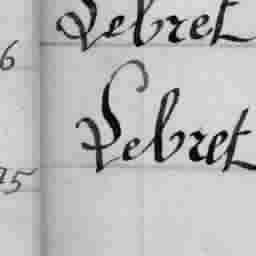 Lebret
6
Lebret
75